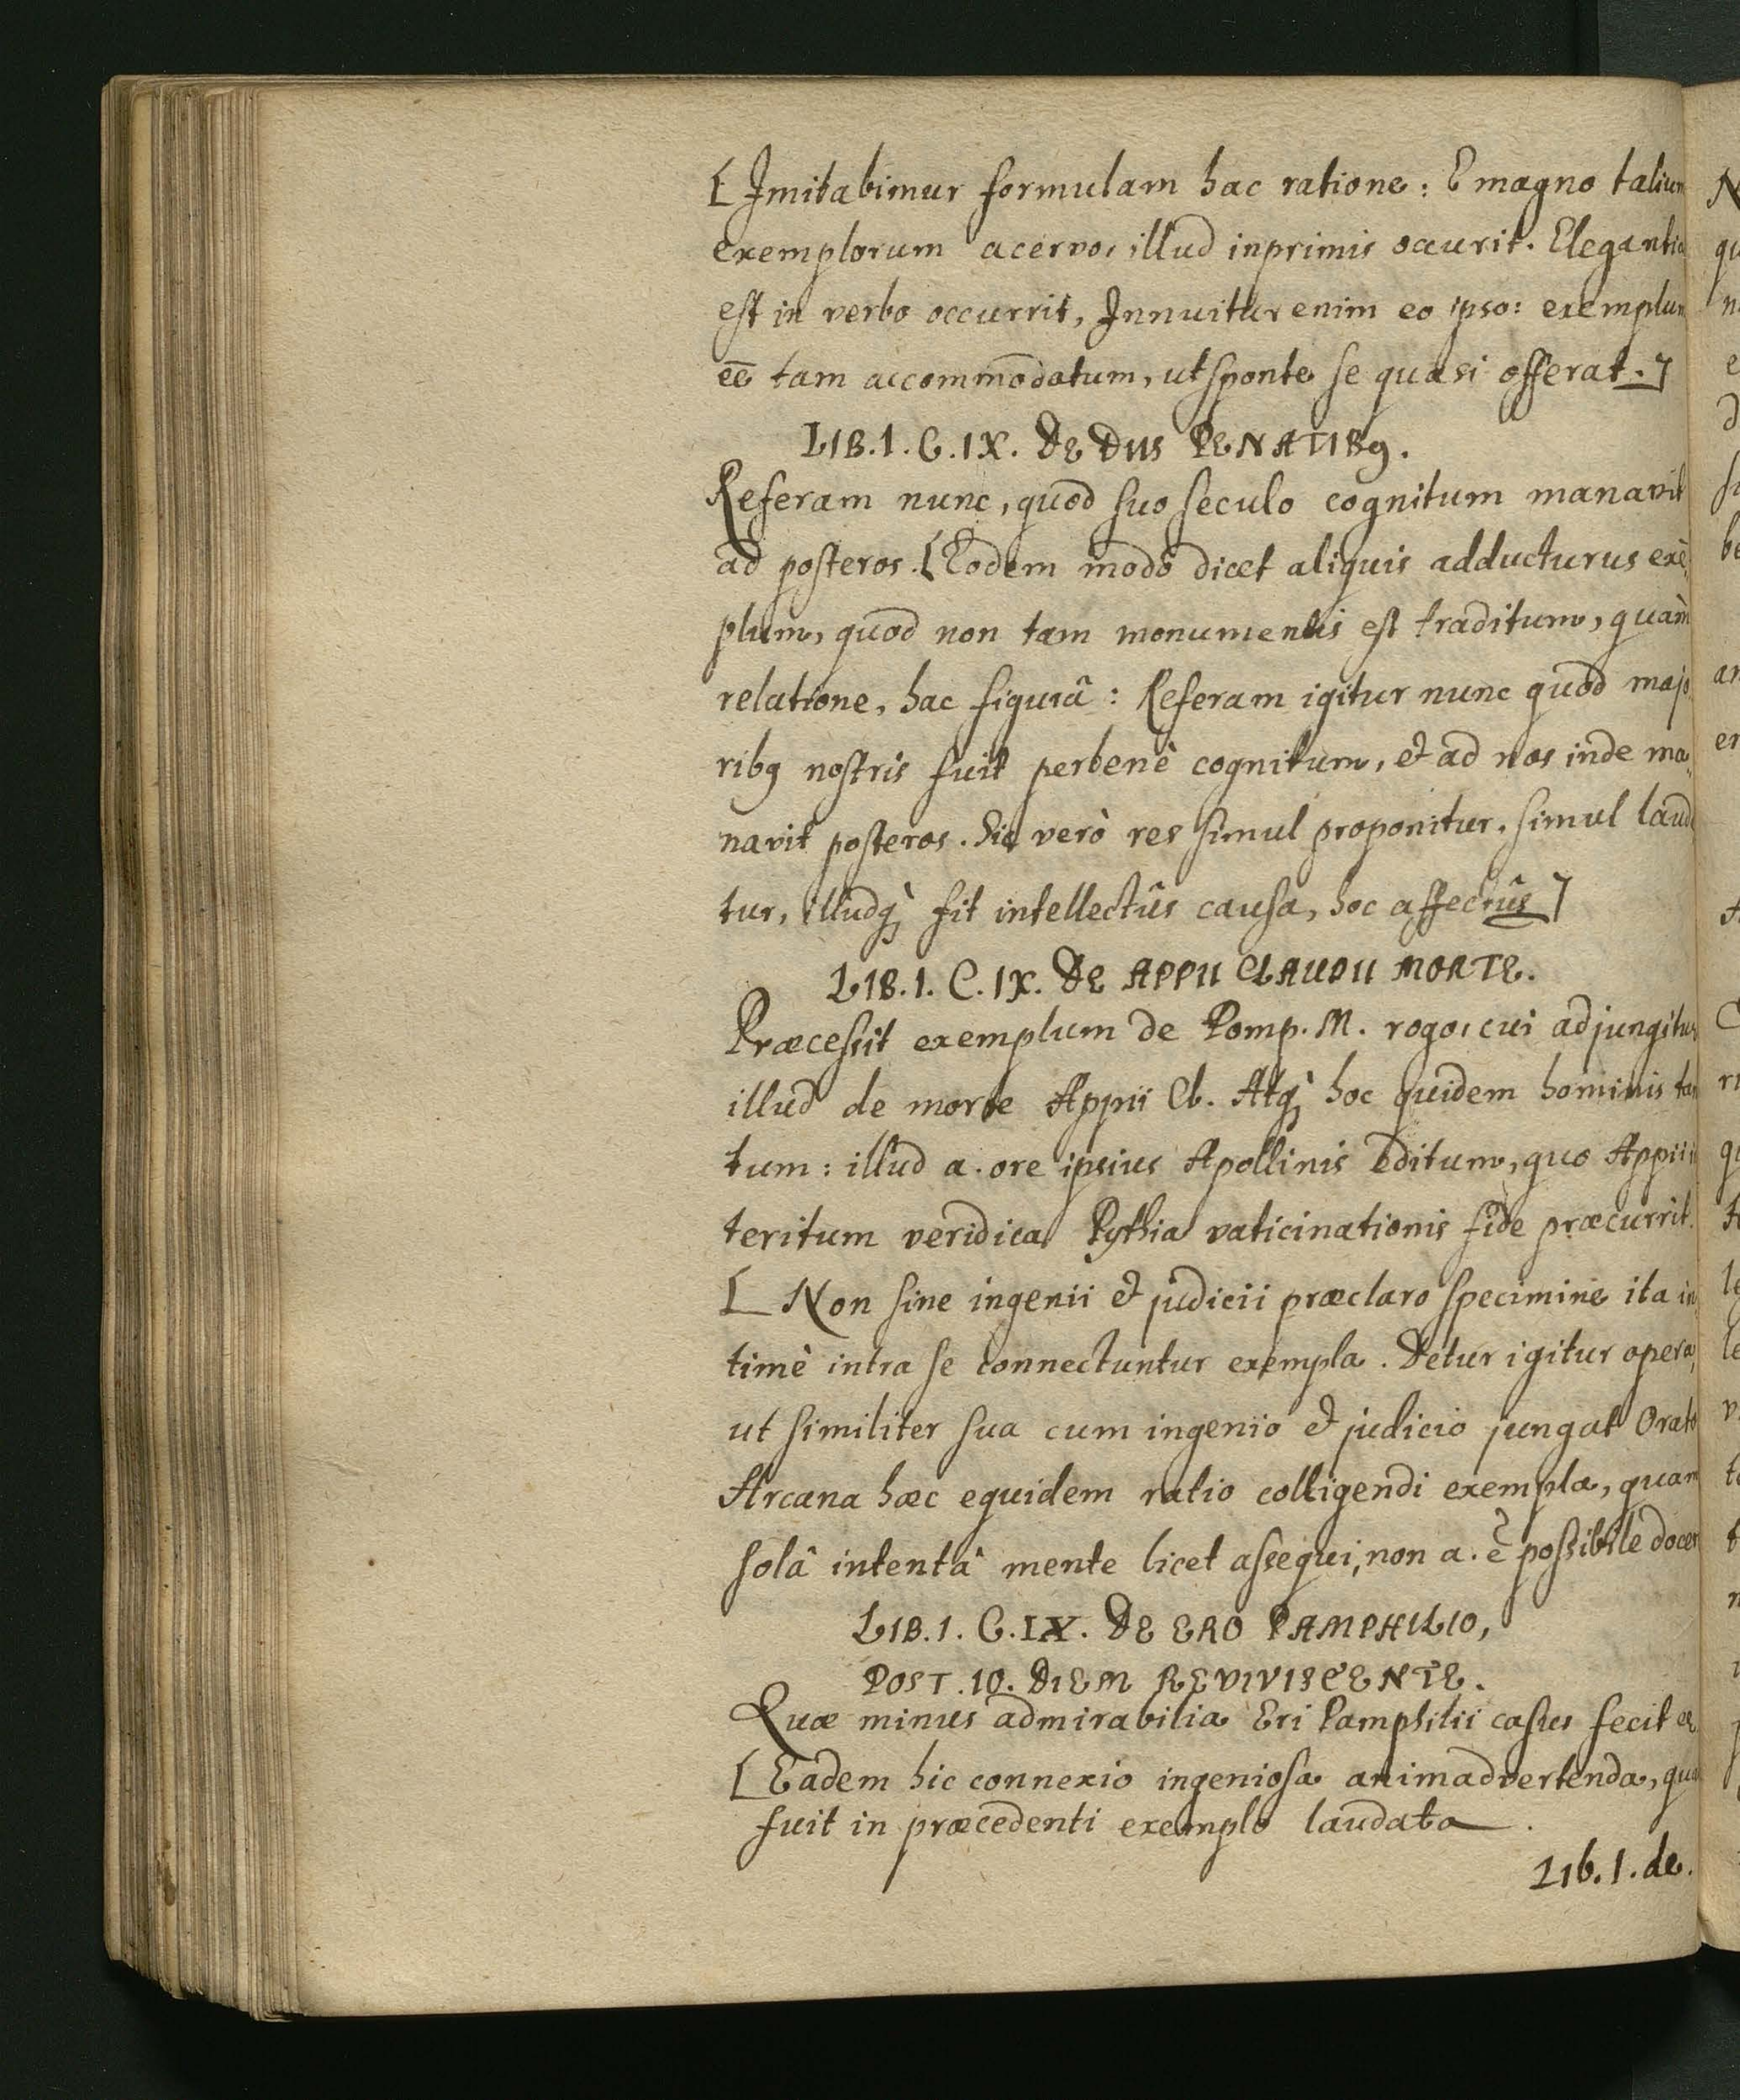 [Imitabimur formulam hac ratione: E magno talium
exemplorum acervo, illud inprimis occurit. Elegantia
est in verbo occurrit, Innuitur enim eo ipso: exemplum
eē tam accommodatum, ut sponte se quasi offerat.]
LIB. 1. C. IX. DE DIIS PENATIB9.
Referam nunc, quod suo seculo cognitum manavit
ad posteros. [Eodem modo dicet aliquis adducturus exē,
plum, quod non tam monumentis est traditum, quàm
relatione, hac figurâ: Referam igitur nunc quod majo,
rib9 nostris fuit perbenè cognitum, et ad nos inde ma,
navit posteros. Sic verò res simul proponitur, simul lauda
tur, illudq; fit intellectûs causa, hoc affectûs]
LIB. 1. C. IX. DE APPII CLAUDII MORTE.
Præcessit exemplum de Pomp. M. rogo, cui adjungitur
illud de morte Appii Cl. Atq; hoc quidem hominis tan
tum: illud a. ore ipsius Apollinis editum, quo Appii in
teritum veridica Pythia vaticinationis fide præcurrit.
[Non sine ingenii et judicii præclaro specimine ita in,
timè intra se connectuntur exempla. Detur igitur opera,
ut similiter sua cum ingenio et judicio jungat Orato
Arcana hæc equidem ratio colligendi exempla, quam
solâ intentâ mente licet assequi, non a. ē possibile docer
LIB. 1. C. IX. DE ERO PAMPHILIO,
POST. 10. DIEM REVIVISCENTE.
Quæ minus admirabilia Eri Pamphilii casus fecit
[Eadem hic connexio ingeniosa animadvertenda, quæ
fuit in præcedenti exemplo laudata.
Lib. 1. de.